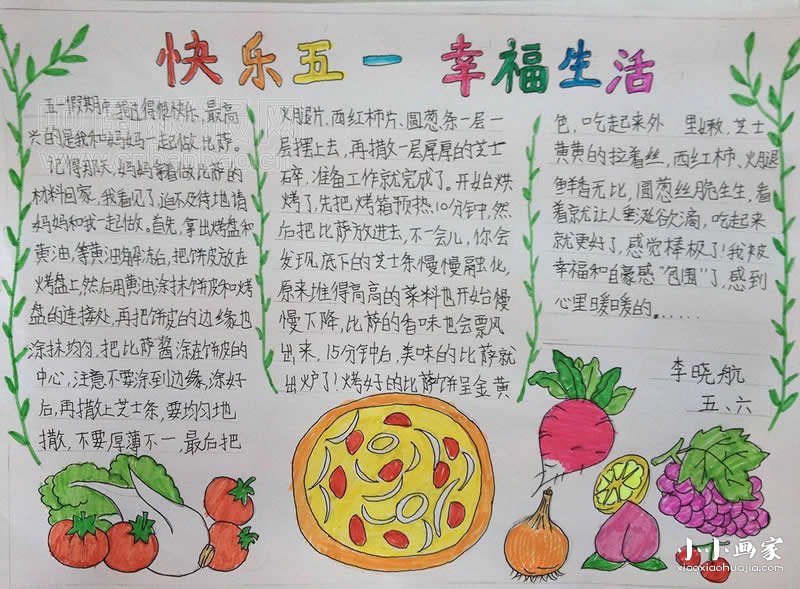 快乐五一 幸福生活
五一假期中,我过得很快乐,最高
兴的是我和妈妈一起做比萨。
记得那天,妈妈拿着做比萨的
材料回家,我看见了,迫不及待地请
妈妈和我一起做。首先,拿出烤盘和
黄油,等黄油解冻后,把饼皮放在
烤盘上,然后用黄油涂抹饼皮和烤
盘的连接处,再把饼皮的边缘也
涂抹均匀,把比萨酱涂在饼皮的
中心,注意不要涂到边缘,涂好
后,再撒上芝士条,要均匀地
撒,不要厚薄不一,最后把
火腿片、西红柿片、圆葱条一层一
层摆上去,再撒一层厚厚的芝士
碎,准备工作就完成了。开始烘
烤了,先把烤箱预热10分钟,然
后把比萨放进去,不一会儿,你会
发现底下的芝士条慢慢融化,
原来堆得高高的菜料也开始慢
慢下降,比萨的香味也会飘
出来,15分钟后,美味的比萨就
出炉了!烤好的比萨饼呈金黄
色,吃起来外 里嫩,芝士
黄黄的拉着丝,西红柿、火腿
鲜香无比,圆葱丝脆生生,看
着就让人垂涎欲滴,吃起来
就更好了,感觉棒极了!我被
幸福和自豪感"包围"了,感到
心里暖暖的。……
李晓航
五、六
小小画家
xiaoxiaohuajia.com